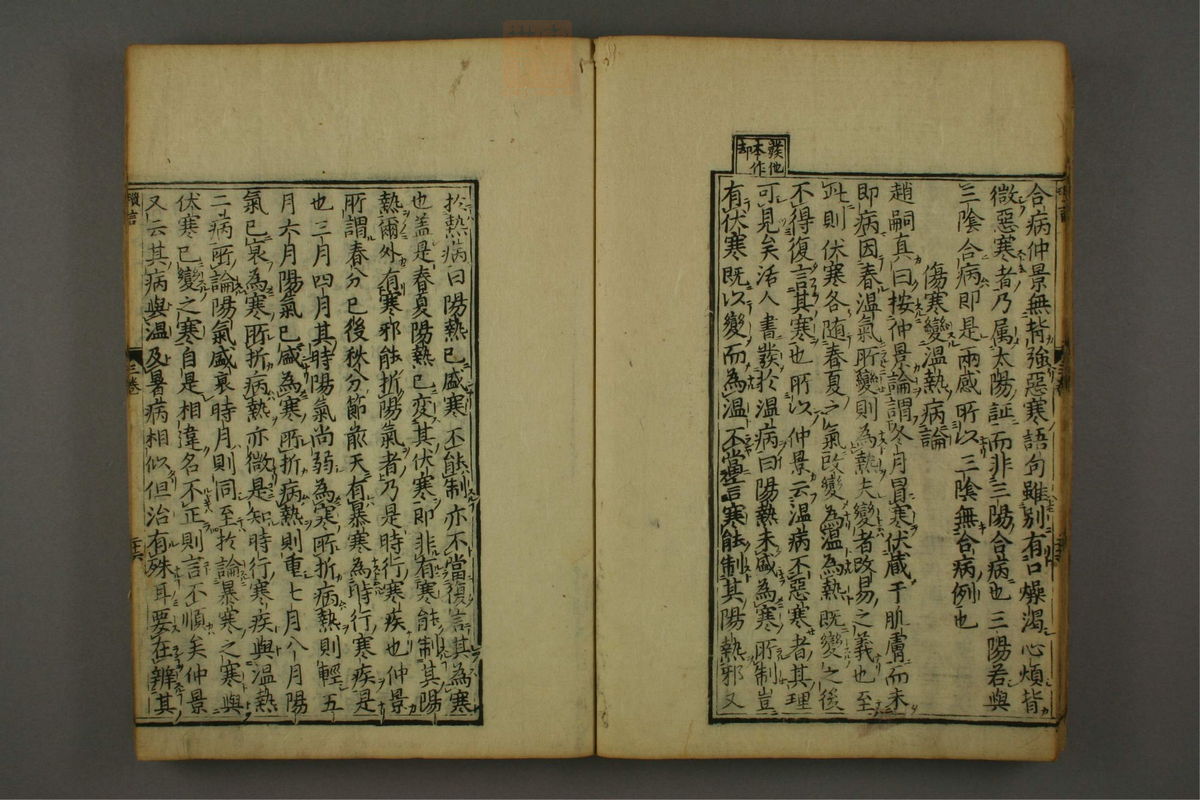 發他
本作
却
合病仲景無背強惡寒語句雖別有口燥渴心煩皆
微惡寒者乃属太陽証而非三陽合病也三陽若與
三陰合病即是兩感所以三陰無合病例也
傷寒變温熱病論
趙嗣真曰按仲景論謂冬月冒寒伏藏于肌膚而未
即病因春温氣所變則為熱夫變者改易之義也至
此則伏寒各随春夏之氣改變為温為熱既變之後
不得復言其寒也所以仲景云温病不惡寒者其理
可見矣活人書發於温病曰陽熱未盛為寒所制豈
有伏寒既以變而為温不當言寒能制其陽熱邪又
於熱病曰陽熱已盛寒不能制亦不當復言其為寒
也盖是春夏陽熱已変其伏寒即非有寒能制其陽
熱爾外有寒邪能折陽氣者乃是時行寒疾也仲景
所謂春分已後秋分節前天有暴寒為時行寒疾是
也三月四月其時陽氣尚弱為寒所折病熱則輕五
月六月陽氣已盛為寒所折病熱則重七月八月陽
氣已衰為寒所折病熱亦微是知時行寒疾與温熱
二病所論陽氣盛衰時月則同至於論暴寒之寒與
伏寒已變之寒自是相違名不正則言不順矣仲景
又云其病與温及暑病相似但治有殊耳要在辨其
三卷